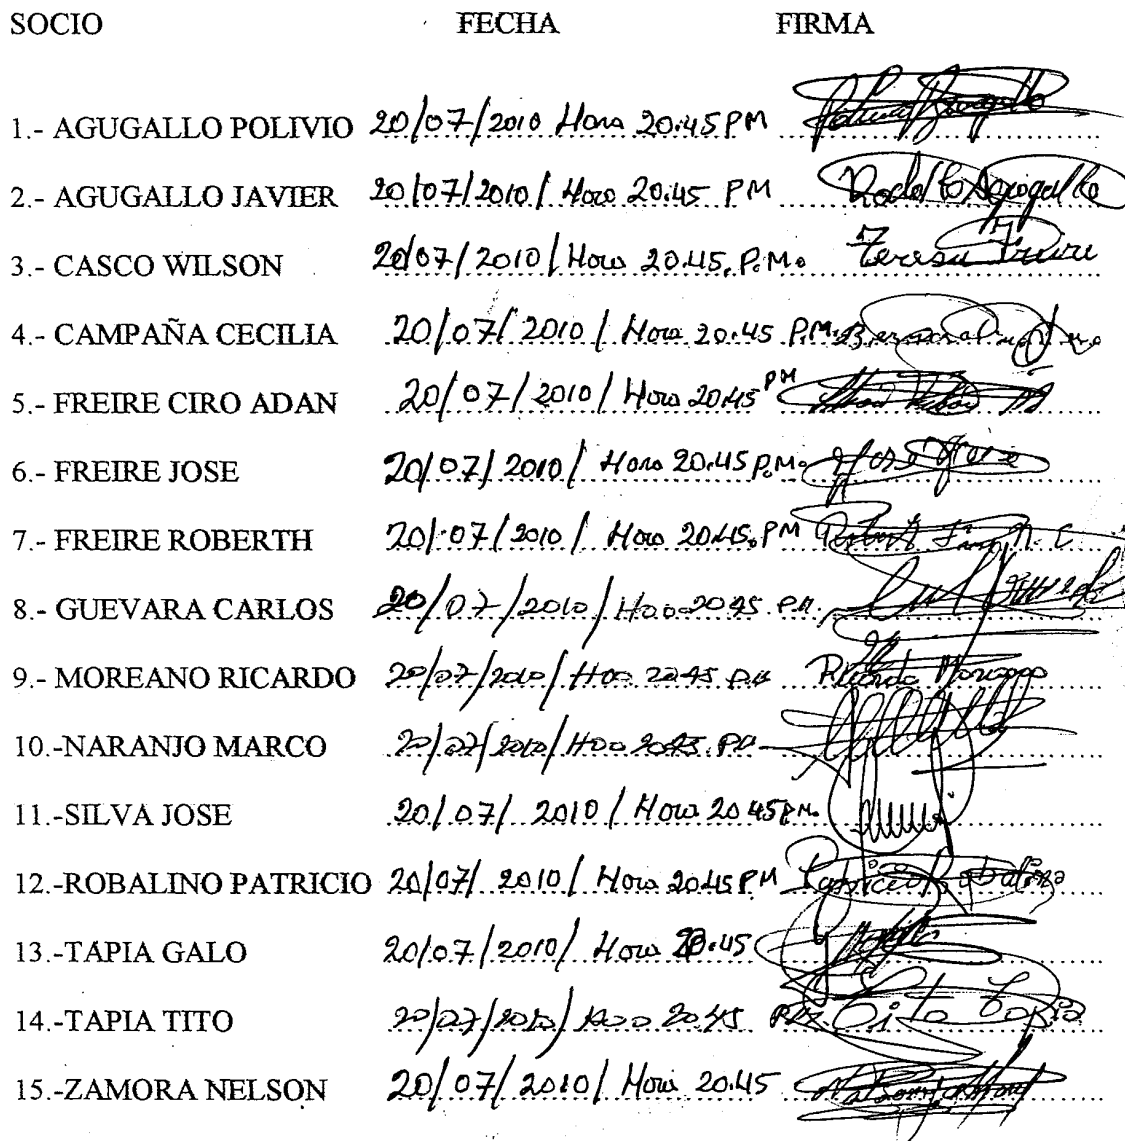 SOCIO FECHA FIRMA
1.- AGUGALLO POLIVIO 20/07/2010 Hora 20:45 PM
2.- AGUGALLO JAVIER 20/07/2010 / Hora 20:45 PM Rodolfo Agugallo
3.- CASCO WILSON 20/07/2010 / Hora 20:45. P.M. Teresa Freire
4.- CAMPAÑA CECILIA 20/07/2010 / Hora 20:45 P.M.
5.- FREIRE CIRO ADAN 20/07/2010 / Hora 20:45 PM
6.- FREIRE JOSE 20/07/2010 / Hora 20:45 P.M. Jose Freire
7.- FREIRE ROBERTH 20/07/2010 / Hora 20:45. PM
8.- GUEVARA CARLOS 20/07/2010/ Hora 20:45 P.M.
9.- MOREANO RICARDO 20/07/2010/ Hora 20:45 P.M. Ricardo Moreano
10.-NARANJO MARCO 20/07/2010/ Hora 20:45. P.M.
11.-SILVA JOSE 20/07/2010 / Hora 20:45 P.M.
12.-ROBALINO PATRICIO 20/07/2010 / Hora 20:45 PM Patricio Robalino
13.-TAPIA GALO 20/07/2010/ Hora 20:45
14.-TAPIA TITO 20/07/2010/ Hora 20:45 P.M. Tito Tapia
15.-ZAMORA NELSON 20/07/2010/ Hora 20:45